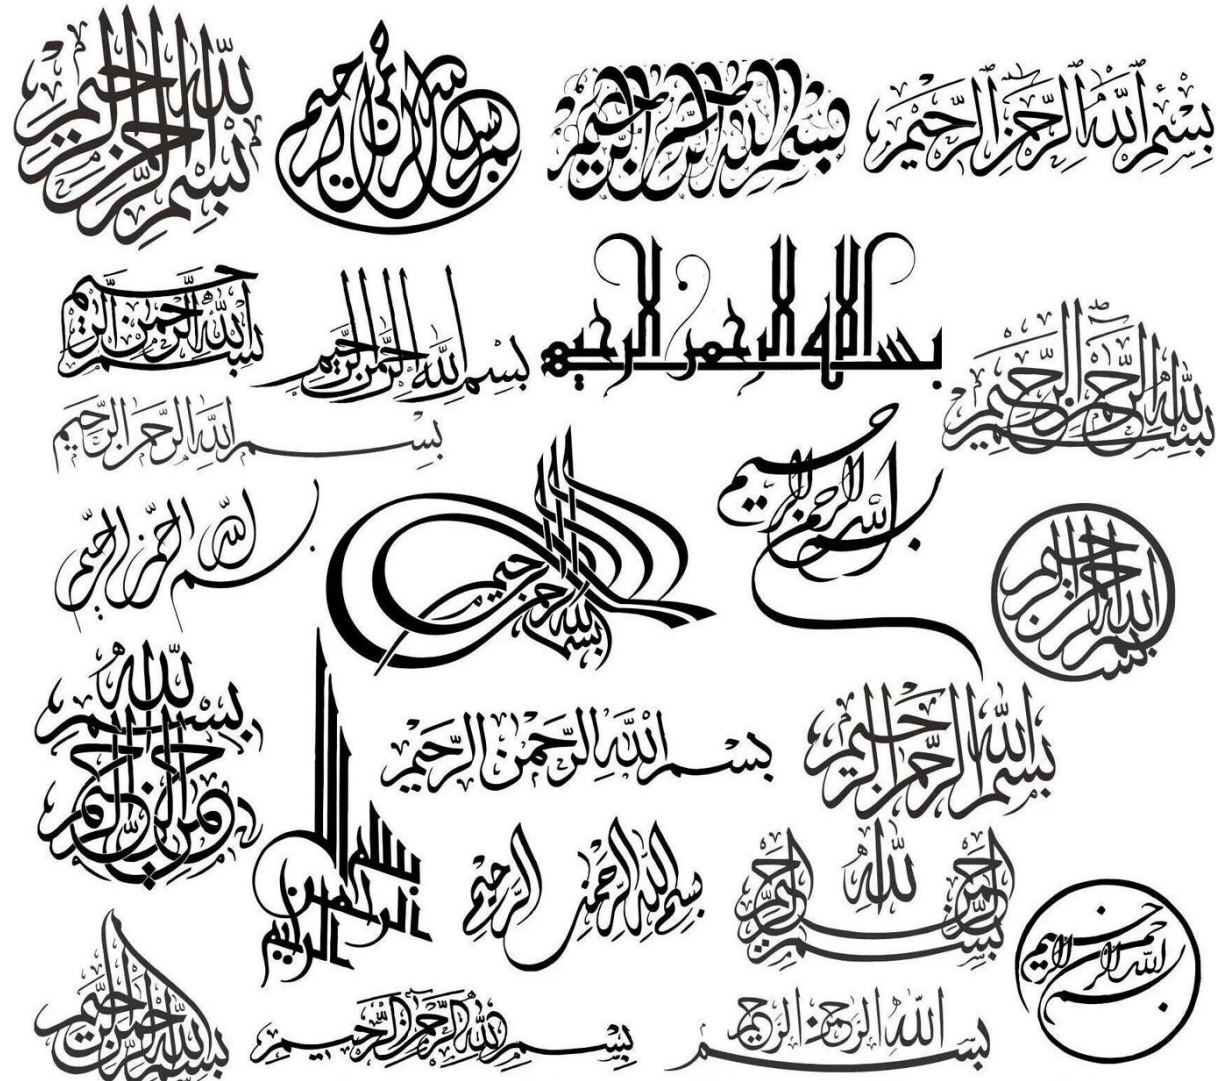 بسم الله الرحمن الرحيم
بسم الله الرحمن الرحيم
بسم الله الرحمن الرحيم
بِسْمِ اللَّهِ الرَّحْمَنِ الرَّحِيمِ
بسم الله الرحمن الرحيم
بسم الله الرحمن الرحيم
بسم الله الرحمن الرحيم
بسم الله الرحمن الرحيم
بسم الله الرحمن الرحيم
بسم الله الرحمن الرحيم
بسم الله الرحمن الرحيم
بسم الله الرحمن الرحيم
بسم الله الرحمن الرحيم
بسم الله الرحمن الرحيم
بسم الله الرحمن الرحيم
بِسْمِ اللَّهِ الرَّحْمَنِ الرَّحِيمِ
بسم الله الرحمن الرحيم
بسم الله الرحمن الرحيم
بسم الله الرحمن الرحيم
بسم الله الرحمن الرحيم
بسم الله الرحمن الرحيم
بسم الله الرحمن الرحيم
بسم الله الرحمن الرحيم